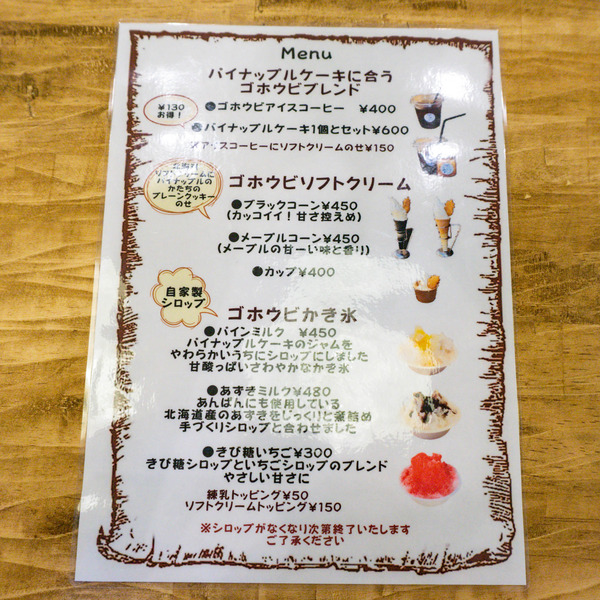 Menu
パイナップルケーキに合う
ゴホウビブレンド
¥130
お得！
●ゴホウビアイスコーヒー ¥400
●パイナップルケーキ1個とセット¥600
アイスコーヒーにソフトクリームのせ¥150
ソフトクリームに
パイナップルの
かたちの
プレーンクッキー
のせ
ゴホウビソフトクリーム
●ブラックコーン¥450
(カッコイイ！甘さ控えめ)
●メープルコーン¥450
(メープルの甘ーい味と香り)
●カップ¥400
自家製
シロップ
ゴホウビかき氷
●パインミルク ¥450
パイナップルケーキのジャムを
やわらかいうちにシロップにしました
甘酸っぱいさわやかなかき氷
●あずきミルク¥480
あんぱんにも使用している
北海道産のあずきをじっくりと煮詰め
手づくりシロップと合わせました
●きび糖いちご¥300
きび糖シロップといちごシロップのブレンド
やさしい甘さに
練乳トッピング¥50
ソフトクリームトッピング¥150
※シロップがなくなり次第終了いたします
ご了承ください